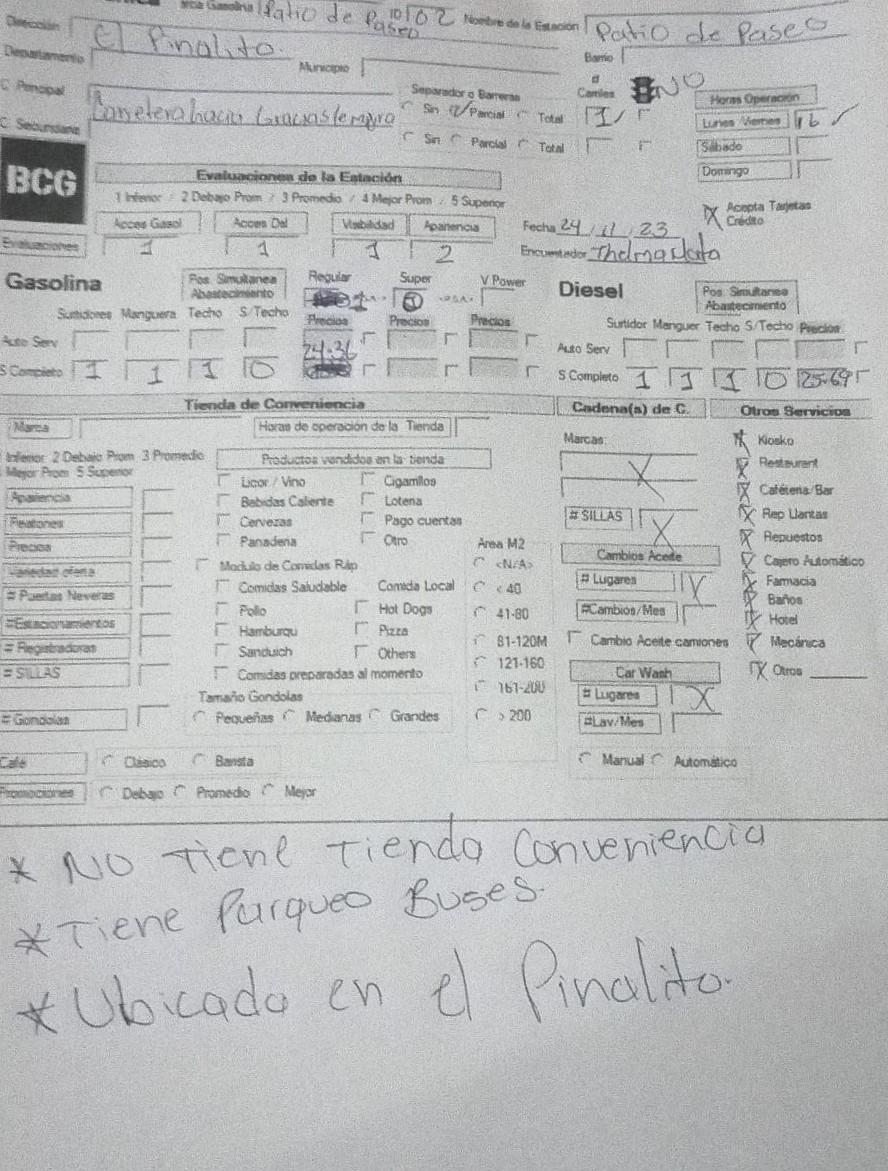 arca Gasolina Patio de Paseo 10102 Nombre de la Estación Patio de Paseo
Dirección El Pinalito. Barrio
Departamento Municipio
C Principal Carretera hacia Gracias lempira Separador o Barreras # Carriles NO Horas Operación
Sin Parcial Total 1 Lunes Viernes 16
C Secundaria Sin Parcial Total Sábado
Domingo
BCG
Evaluaciones de la Estación
1 Inferior / 2 Debajo Prom / 3 Promedio / 4 Mejor Prom / 5 Superior
Acces Gasol Acces Dsl Visibilidad Apariencia Fecha 24, 11, 23 Acepta Tarjetas Crédito
Evaluaciones 1 1 1 2 Encuestador Thelma
Gasolina Pos. Simultanea Abastecimiento Regular Super V Power Diesel Pos. Simultanea Abastecimiento
Surtidores Manguera Techo S/Techo Precios Precios Precios Surtidor Manguer Techo S/Techo Precios
Auto Serv 24.36 Auto Serv
S Completo 1 1 1 0 S Completo 1 1 1 0 25.69
Tienda de Conveniencia Cadena(s) de C. Otros Servicios
Marca Horas de operación de la Tienda Marcas: Kiosko
Inferior 2 Debajo Prom 3 Promedio Restaurant
Mejor Prom 5 Superior Productos vendidos en la tienda Cafétería/Bar
Apariencia Licor / Vino Cigarrillos
Peatones Bebidas Caliente Lotería # SILLAS Rep Llantas
Precios Cervezas Pago cuentas Repuestos
Variedad oferta Panadería Otro Area M2 Cambios Aceite Cajero Automático
# Puertas Neveras Modulo de Comidas Ráp <N/A> # Lugares Farmacia
Comidas Saludable Comida Local < 40 Baños
#Estacionamientos Pollo Hot Dogs 41-80 #Cambios/Mes Hotel
# Registradoras Hamburqu Pizza 81-120M Cambio Aceite camiones Mecánica
# SILLAS Sanduich Others 121-160 Car Wash Otros
Comidas preparadas al momento 161-200 # Lugares
# Gondolas Tamaño Gondolas
Pequeñas Medianas Grandes > 200 #Lav/Mes
Café Clásico Barista Manual Automático
Promociones Debajo Promedio Mejor
* No Tiene Tienda Conveniencia
* Tiene Parqueo Buses.
* Ubicada en el Pinalito.